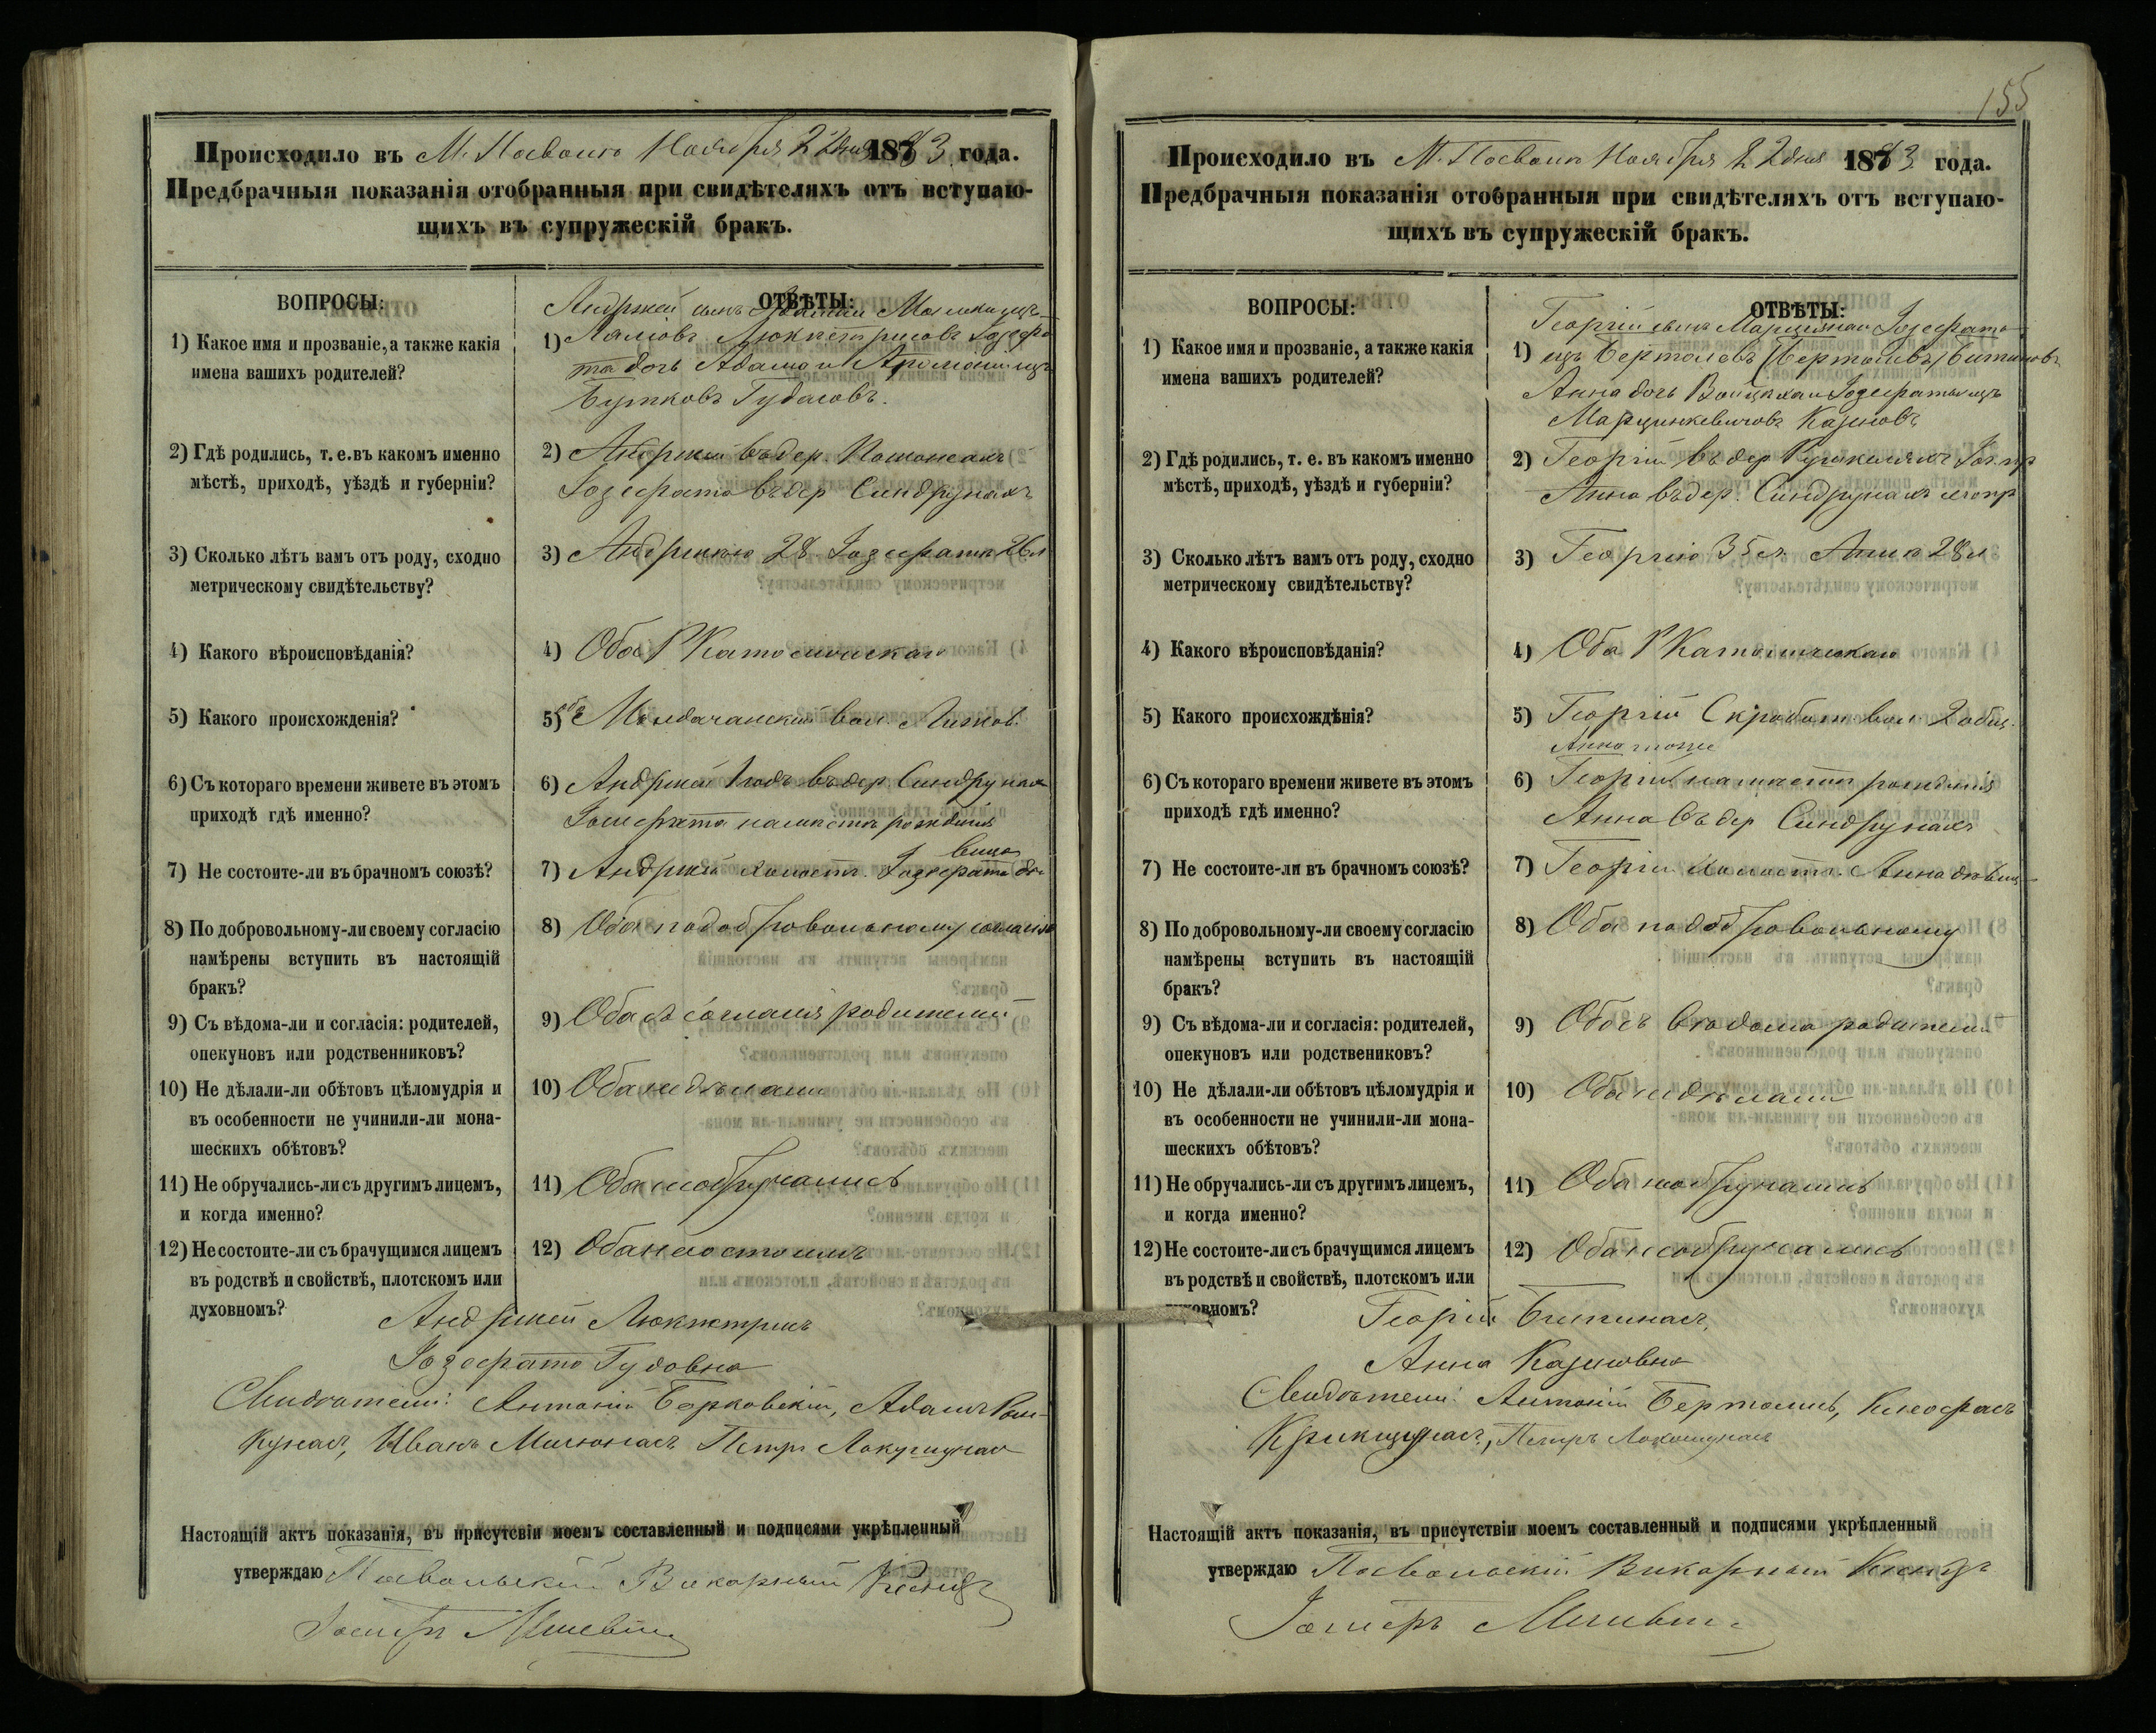 155
Происходило въ М. Посволь Ноября 22 дня 1883 года.
Предбрачныя показанія отобранныя при свидѣтеляхъ отъ вступаю-
щихъ въ супружескій бракъ.
ВОПРОСЫ:
ОТВѢТЫ:
1) Какое имя и прозваніе, а также какія
имена вашихъ родителей?
Андржей сынъ
1)
та дочь Адама и
Бутковъ Гудасовъ.
2) Гдѣ родились, т. е. въ какомъ именно
мѣстѣ, приходѣ, уѣздѣ и губерніи?
2) Андржей въ дер.
Іозефата въ дер Синдрунахъ
3) Сколько лѣтъ вамъ отъ роду, сходно
метрическому свидѣтельству?
3) Андржею 28 Іозефатѣ 26 л
4) Какого вѣроисповѣданія?
4) Оба Р Католическаго
5) Какого происхожденія?
5) вол
6) Съ котораго времени живете въ этомъ
приходѣ гдѣ именно?
6) Андржей годъ въ дер. Синдрунахъ
Іозефата на мѣстѣ рожденія
7) Не состоите-ли въ брачномъ союзѣ?
7) Андржей холостъ Іозефата дѣ
вица
8) По добровольному-ли своему согласію
намѣрены вступить въ настоящій
бракъ?
8) Оба по добровольному согласію
9) Съ вѣдома-ли и согласія: родителей,
опекуновъ или родственниковъ?
9) Оба съ согласія родителей
10) Не дѣлали-ли обѣтовъ цѣломудрія и
въ особенности не учинили-ли мона-
шескихъ обѣтовъ?
10) Оба не дѣлали
11) Не обручались-ли съ другимъ лицемъ,
и когда именно?
11) Оба не обручались
12) Не состоите-ли съ брачущимся лицемъ
въ родствѣ и свойствѣ, плотскомъ или
духовномъ?
12) Оба не состоимъ
Андржей
Іозефата Гудовна
Свидѣтели: Антоній Борковскій, Адамъ
Иванъ Петръ
Настоящій актъ показанія, въ присутсвіи моемъ составленный и подписями укрѣпленный
утверждаю Посвольскій Викарный Ксендзъ
Іосифъ
Происходило въ М. Посволь Ноября 22 дня 1883 года.
Предбрачныя показанія отобранныя при свидѣтеляхъ отъ вступаю-
щихъ въ супружескій бракъ.
ВОПРОСЫ:
ОТВѢТЫ:
1) Какое имя и прозваніе, а также какія
имена вашихъ родителей?
Георгій сынъ Марціяна и Іозефаты
1)
Анна дочь Войцѣха и Іозефаты изъ
Марцинкевичовъ Казновъ
2) Гдѣ родились, т. е. въ какомъ именно
мѣстѣ, приходѣ, уѣздѣ и губерніи?
2) Георгій въ дер
Анна въ дер. Синдрунахъ
3) Сколько лѣтъ вамъ отъ роду, сходно
метрическому свидѣтельству?
3) Георгію 35 л. Аннѣ 28 л
4) Какого вѣроисповѣданія?
4) Оба Р Католическаго
5) Какого происхождѣнія?
5) Георгій вол. 2 общ.
Анна тоже
6) Съ котораго времени живете въ этомъ
приходѣ гдѣ именно?
6) Георгій на мѣстѣ рожденія
Анна въ дер Синдрунахъ
7) Не состоите-ли въ брачномъ союзѣ?
7) Георгій холостъ. Анна дѣвица
8) По добровольному-ли своему согласію
намѣрены вступить въ настоящій
бракъ?
8) Оба по добровольному
9) Съ вѣдома-ли и согласія: родителей,
опекуновъ или родствениковъ?
9) Оба съ вѣдома родителей
10) Не дѣлали-ли обѣтовъ цѣломудрія и
въ особенности не учинили-ли мона-
шескихъ обѣтовъ?
10) Оба не дѣлали
11) Не обручались-ли съ другимъ лицемъ,
и когда именно?
11) Оба не обручались
12) Не состоите-ли съ брачущимся лицемъ
въ родствѣ и свойствѣ, плотскомъ или
духовномъ?
12) Оба не обручались
Георгій
Анна Казновна
Свидѣтели: Антоній Бертолисъ,
Петръ
Настоящій актъ показанія, въ присутствіи моемъ составленный и подписями укрѣпленный
утверждаю Посвольскій Викарный Ксендзъ
Іосифъ